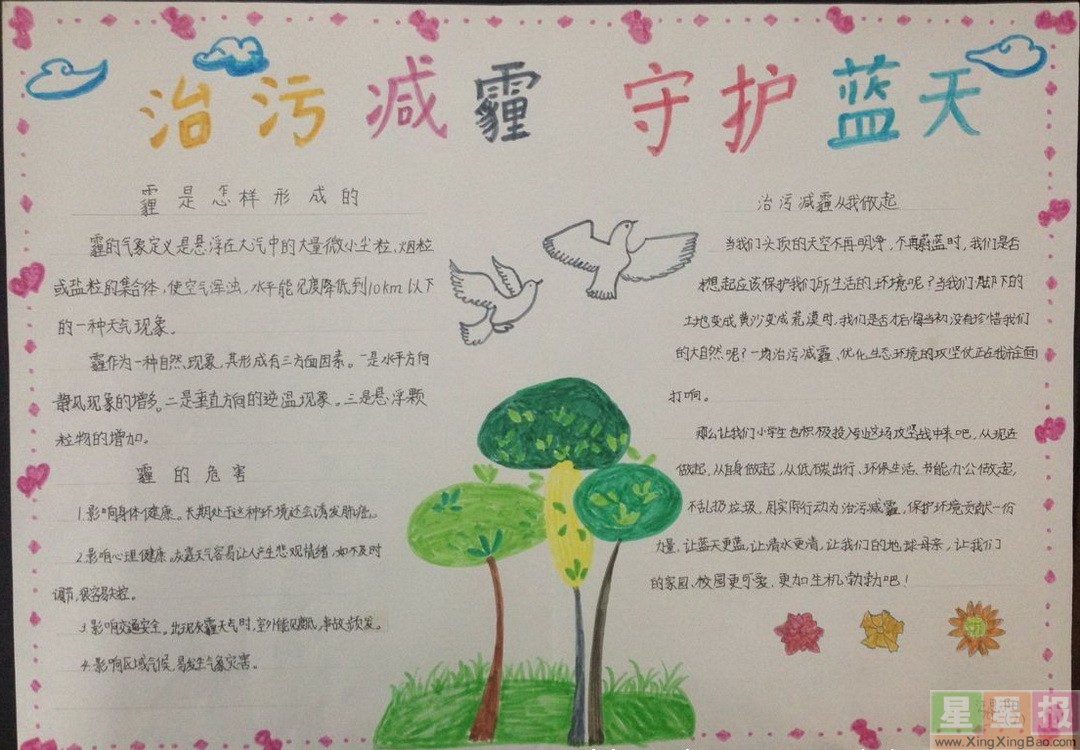 治污减霾 守护蓝天
霾是怎样形成的
霾的气象定义是悬浮在大气中的大量微小尘粒、烟粒
或盐粒的集合体,使空气浑浊,水平能见度降低到10km以下
的一种天气现象。
霾作为一种自然现象,其形成有三方面因素。一是水平方向
静风现象的增多。二是垂直方向的逆温现象。三是悬浮颗
粒物的增加。
霾的危害
1.影响身体健康。长期处于这种环境还会诱发肺癌。
2.影响心理健康。灰霾天气容易让人产生悲观情绪,如不及时
调节,很容易失控。
3.影响交通安全。出现灰霾天气时,室外能见度低,事故频发。
4.影响区域气候,易发生气象灾害。
治污减霾从我做起
当我们头顶的天空不再明净,不再蔚蓝时,我们是否
想起应该保护我们所生活的环境呢?当我们脚下的
土地变成黄沙变成荒漠时,我们是否才后悔当初没有珍惜我们
的大自然呢?一场治污减霾、优化生态环境的攻坚仗正在我市全面
打响。
那么让我们小学生也积极投入到这场攻坚战中来吧,从现在
做起,从自身做起,从低碳出行、环保生活、节能办公做起,
不乱扔垃圾,用实际行动为治污减霾,保护环境贡献一份
力量,让蓝天更蓝,让清水更清,让我们的地球母亲,让我们
的家园、校园更可爱,更加生机勃勃吧!
星星报
www.XingXingBao.com